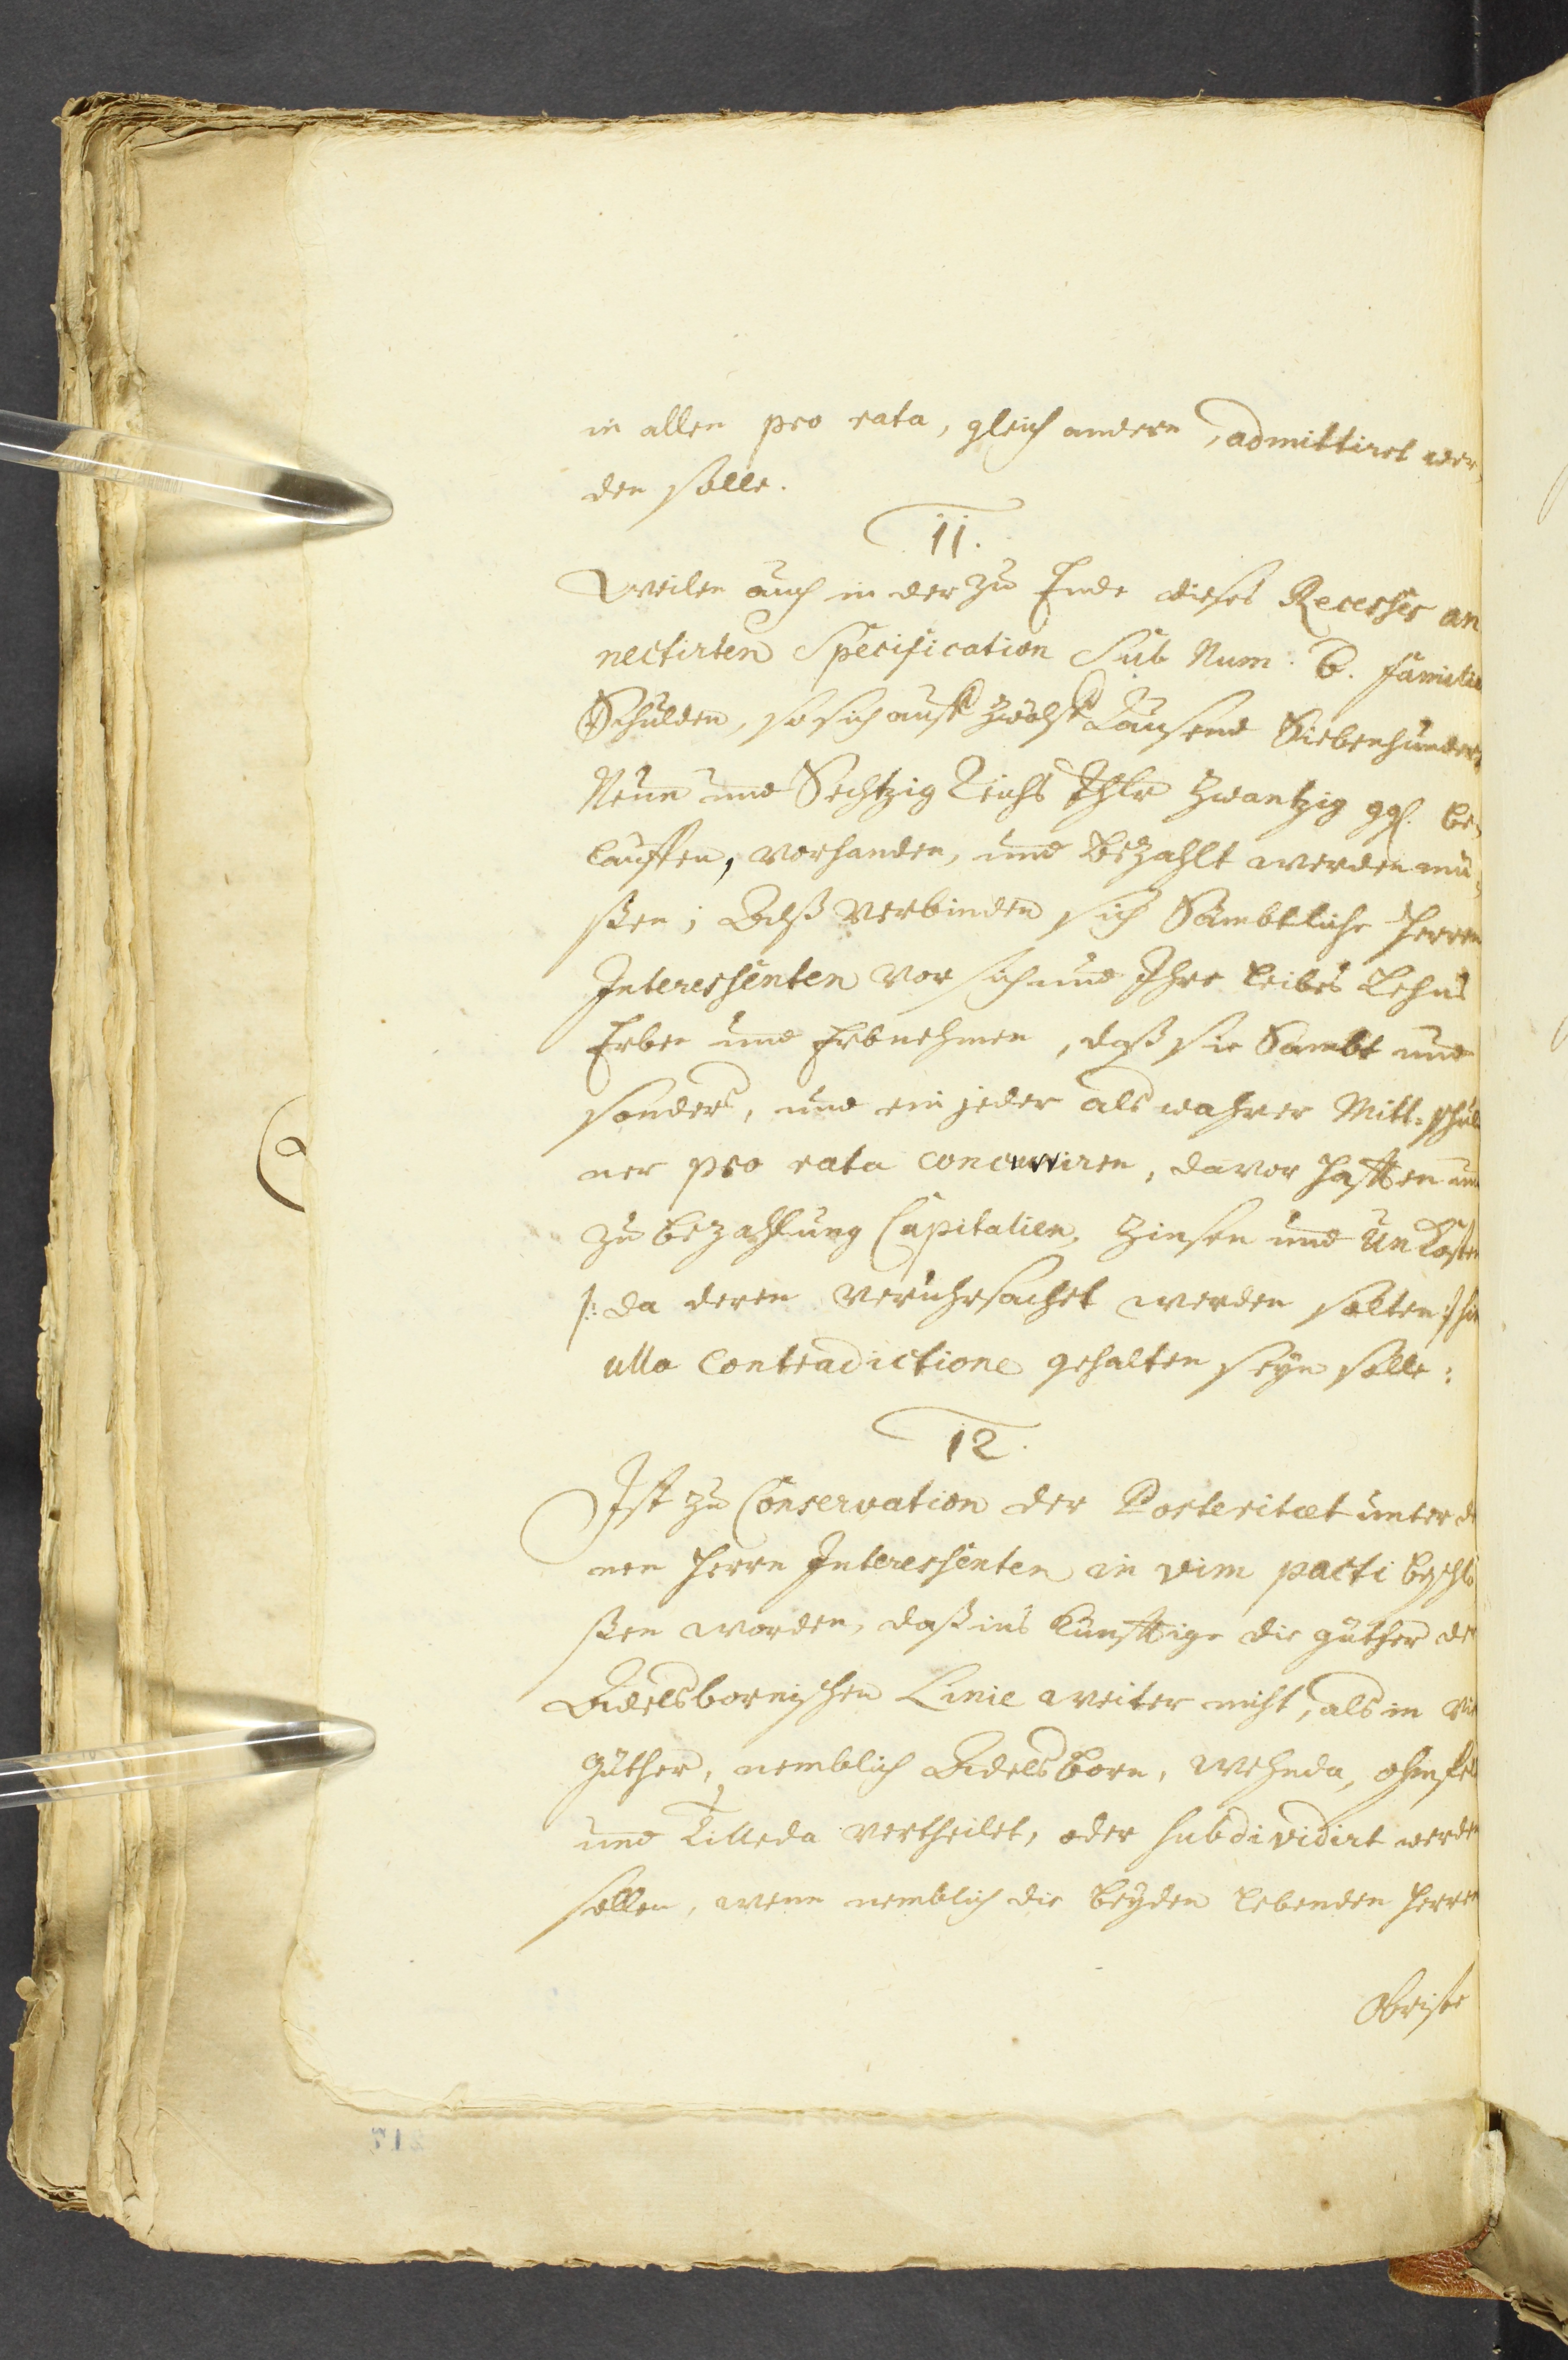 in allen pro rata, gleich andern, admittiret wer
den solle.
11.
Weilen auch in der zu Ende dieses Recesses an
nectirten Specification sub Num: B. Familie
Schulden, so sich auff zwölff Tausend Siebenhundert
Neun und Sechtzig Reichs Thlr zwantzig ggl. be-
lauffen, vorhanden, und bezahlt werden mü-
ßen; Alß verbinden sich Sämbtliche Herren
Interessenten vor sich und Ihre Leibes Lehns
Erben und Erbnehmen, daß sie Sambt und
sonders, und ein jeder als wahrer Mitt-schuld
ner pro rata concurriren, davor hafften und
zu bezahlung Capitalien, Zinsen und Unkosten
/: da deren veruhrsachet werden solten :/ sine
ulla Contradictione gehalten seyn solle:
12.
Ist zu Conservation der Posteritæt unter de
nen Herrn Interessenten in vim pacti beschlo
ßen worden, daß ins künfftige die güther der
Adelsbornischen Linie weiter nicht, als in vier
Güther, nemblich Adelsborn, Wehnda, Ohmfeld
und Tilleda vertheilet, oder subdividirt werden
sollen, wenn nemblich die beyden lebenden Herren
Obriste
217